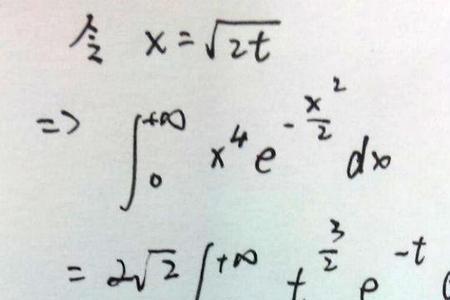 令 x = √2t
=> ∫₀^{+∞} x⁴ e^{-x²/2} dx
= 2√2 ∫^{+∞} t^{3/2} e^{-t}